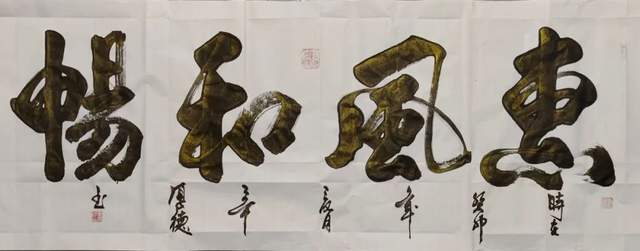 惠風和暢
時在
癸卯
年
夏月
厚德
玉